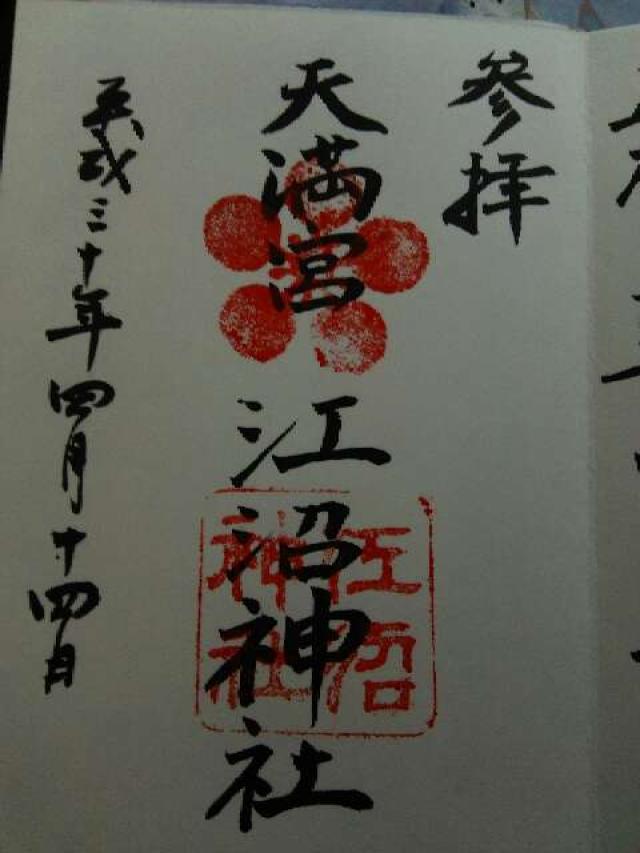 参拝
天満宮 江沼神社
江沼神社
平成三十年四月十四日